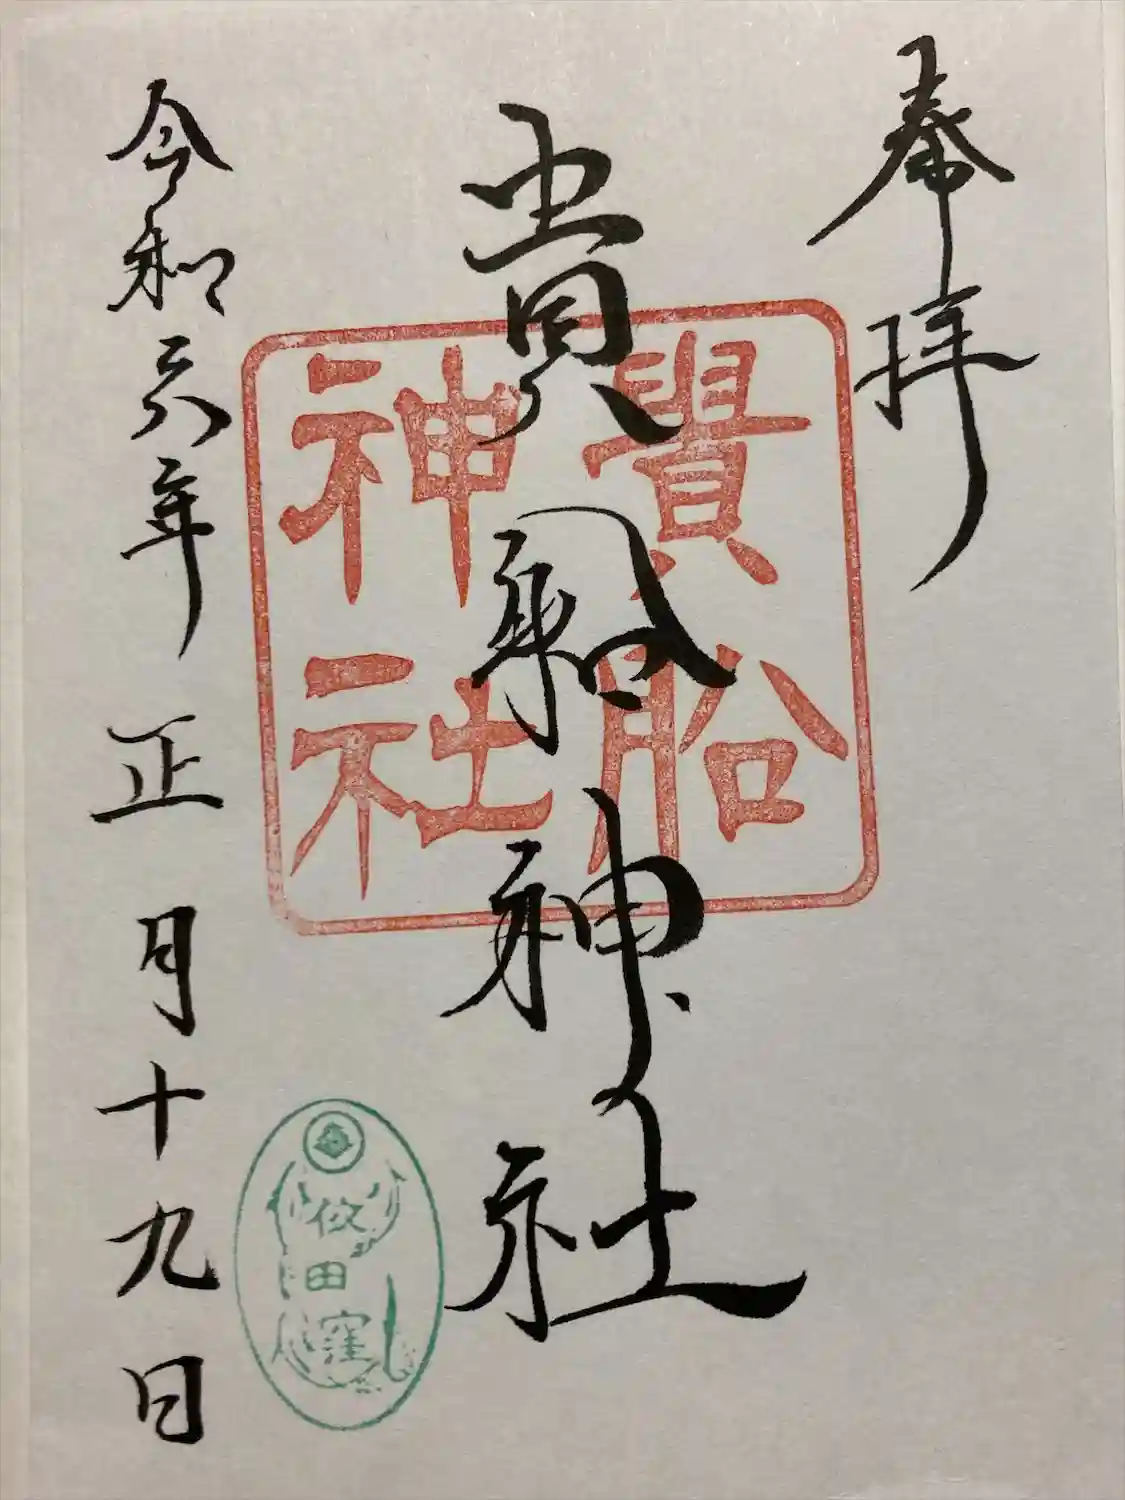 奉拝
貴船神社
貴船
神社
佼田窪
令和六年正月十九日